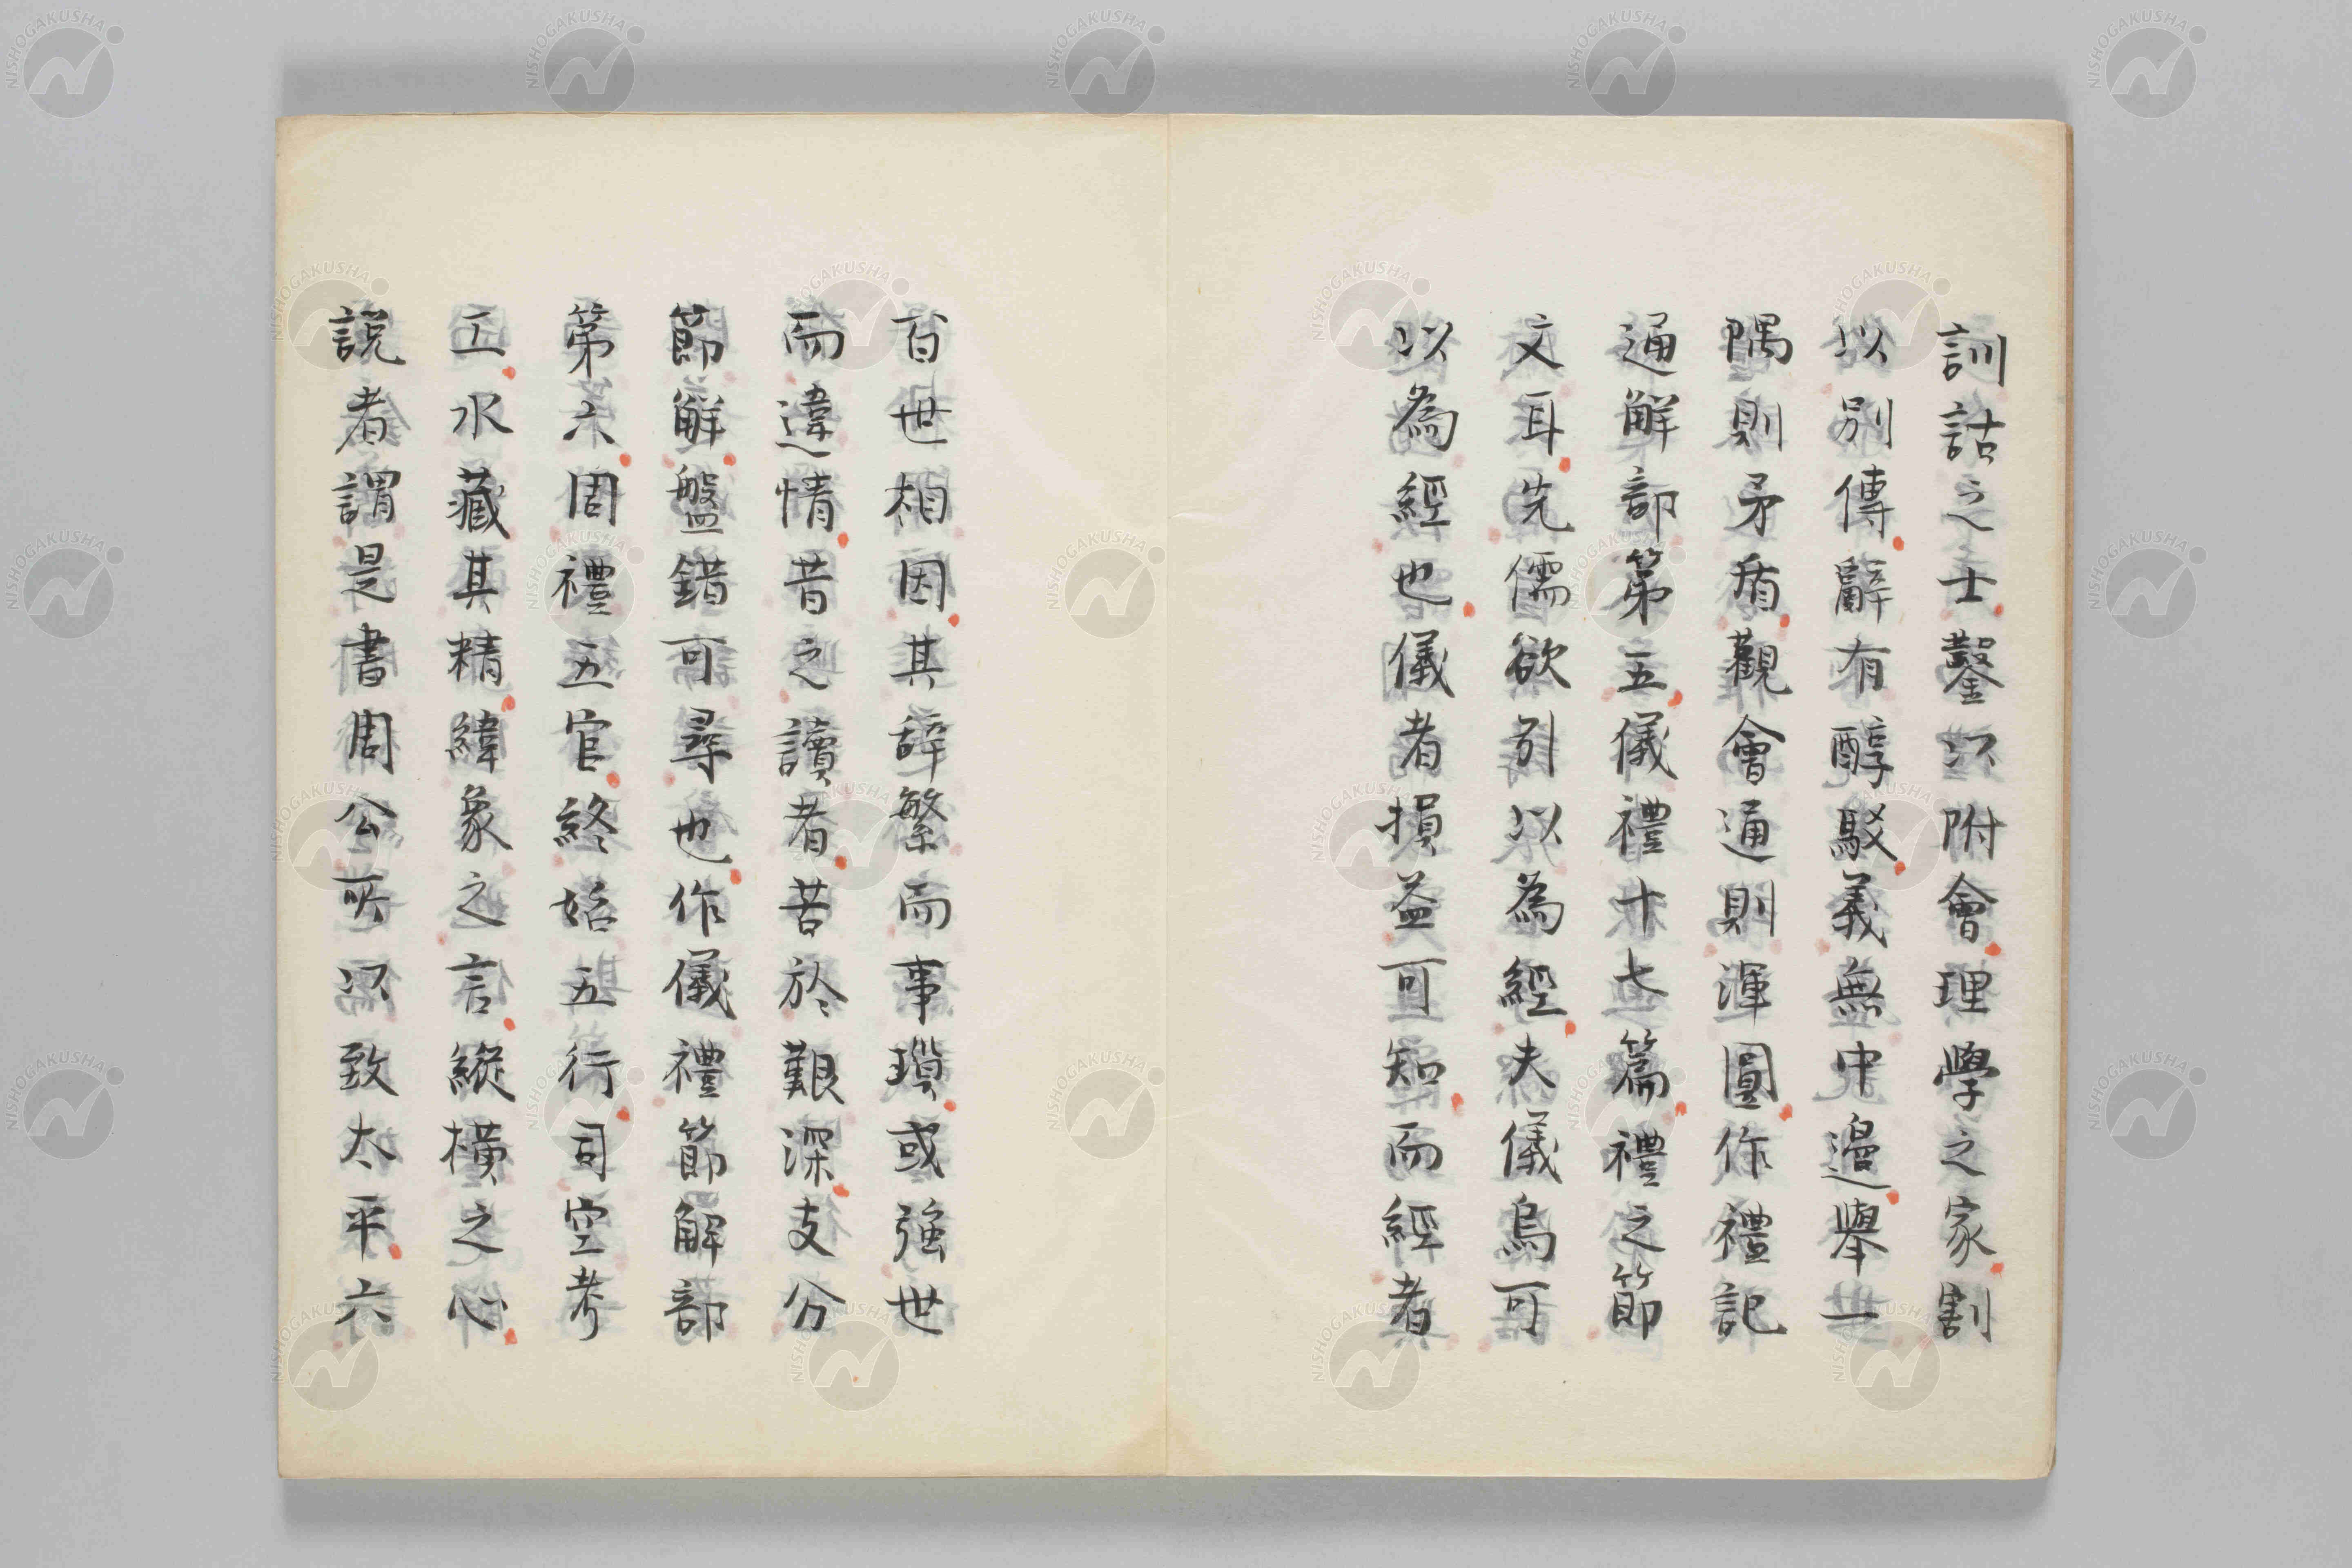 訓詁之士鑿以附會理學之家割
以別傳辭有醇駁義無中邉舉一
隅則矛盾觀會通則渾圓作禮記
通解部第五儀禮十七篇禮之節
文耳先儒欲引以為經夫儀烏可
以為經也儀者損益可知而經者
百世相因其辞繁而事瑣或強世
而違情昔之讀者苦於艱深支分
節解盤錯可尋也作儀禮節解部
第六周禮五官終始五行司空考
工水藏其精緯象之言縱横之心
説者謂是書周公所以致太平六
NISHOGAKUSHA